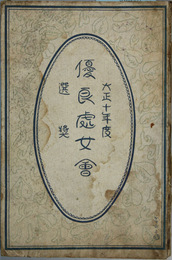 大正十年度
優良處女會
選奬